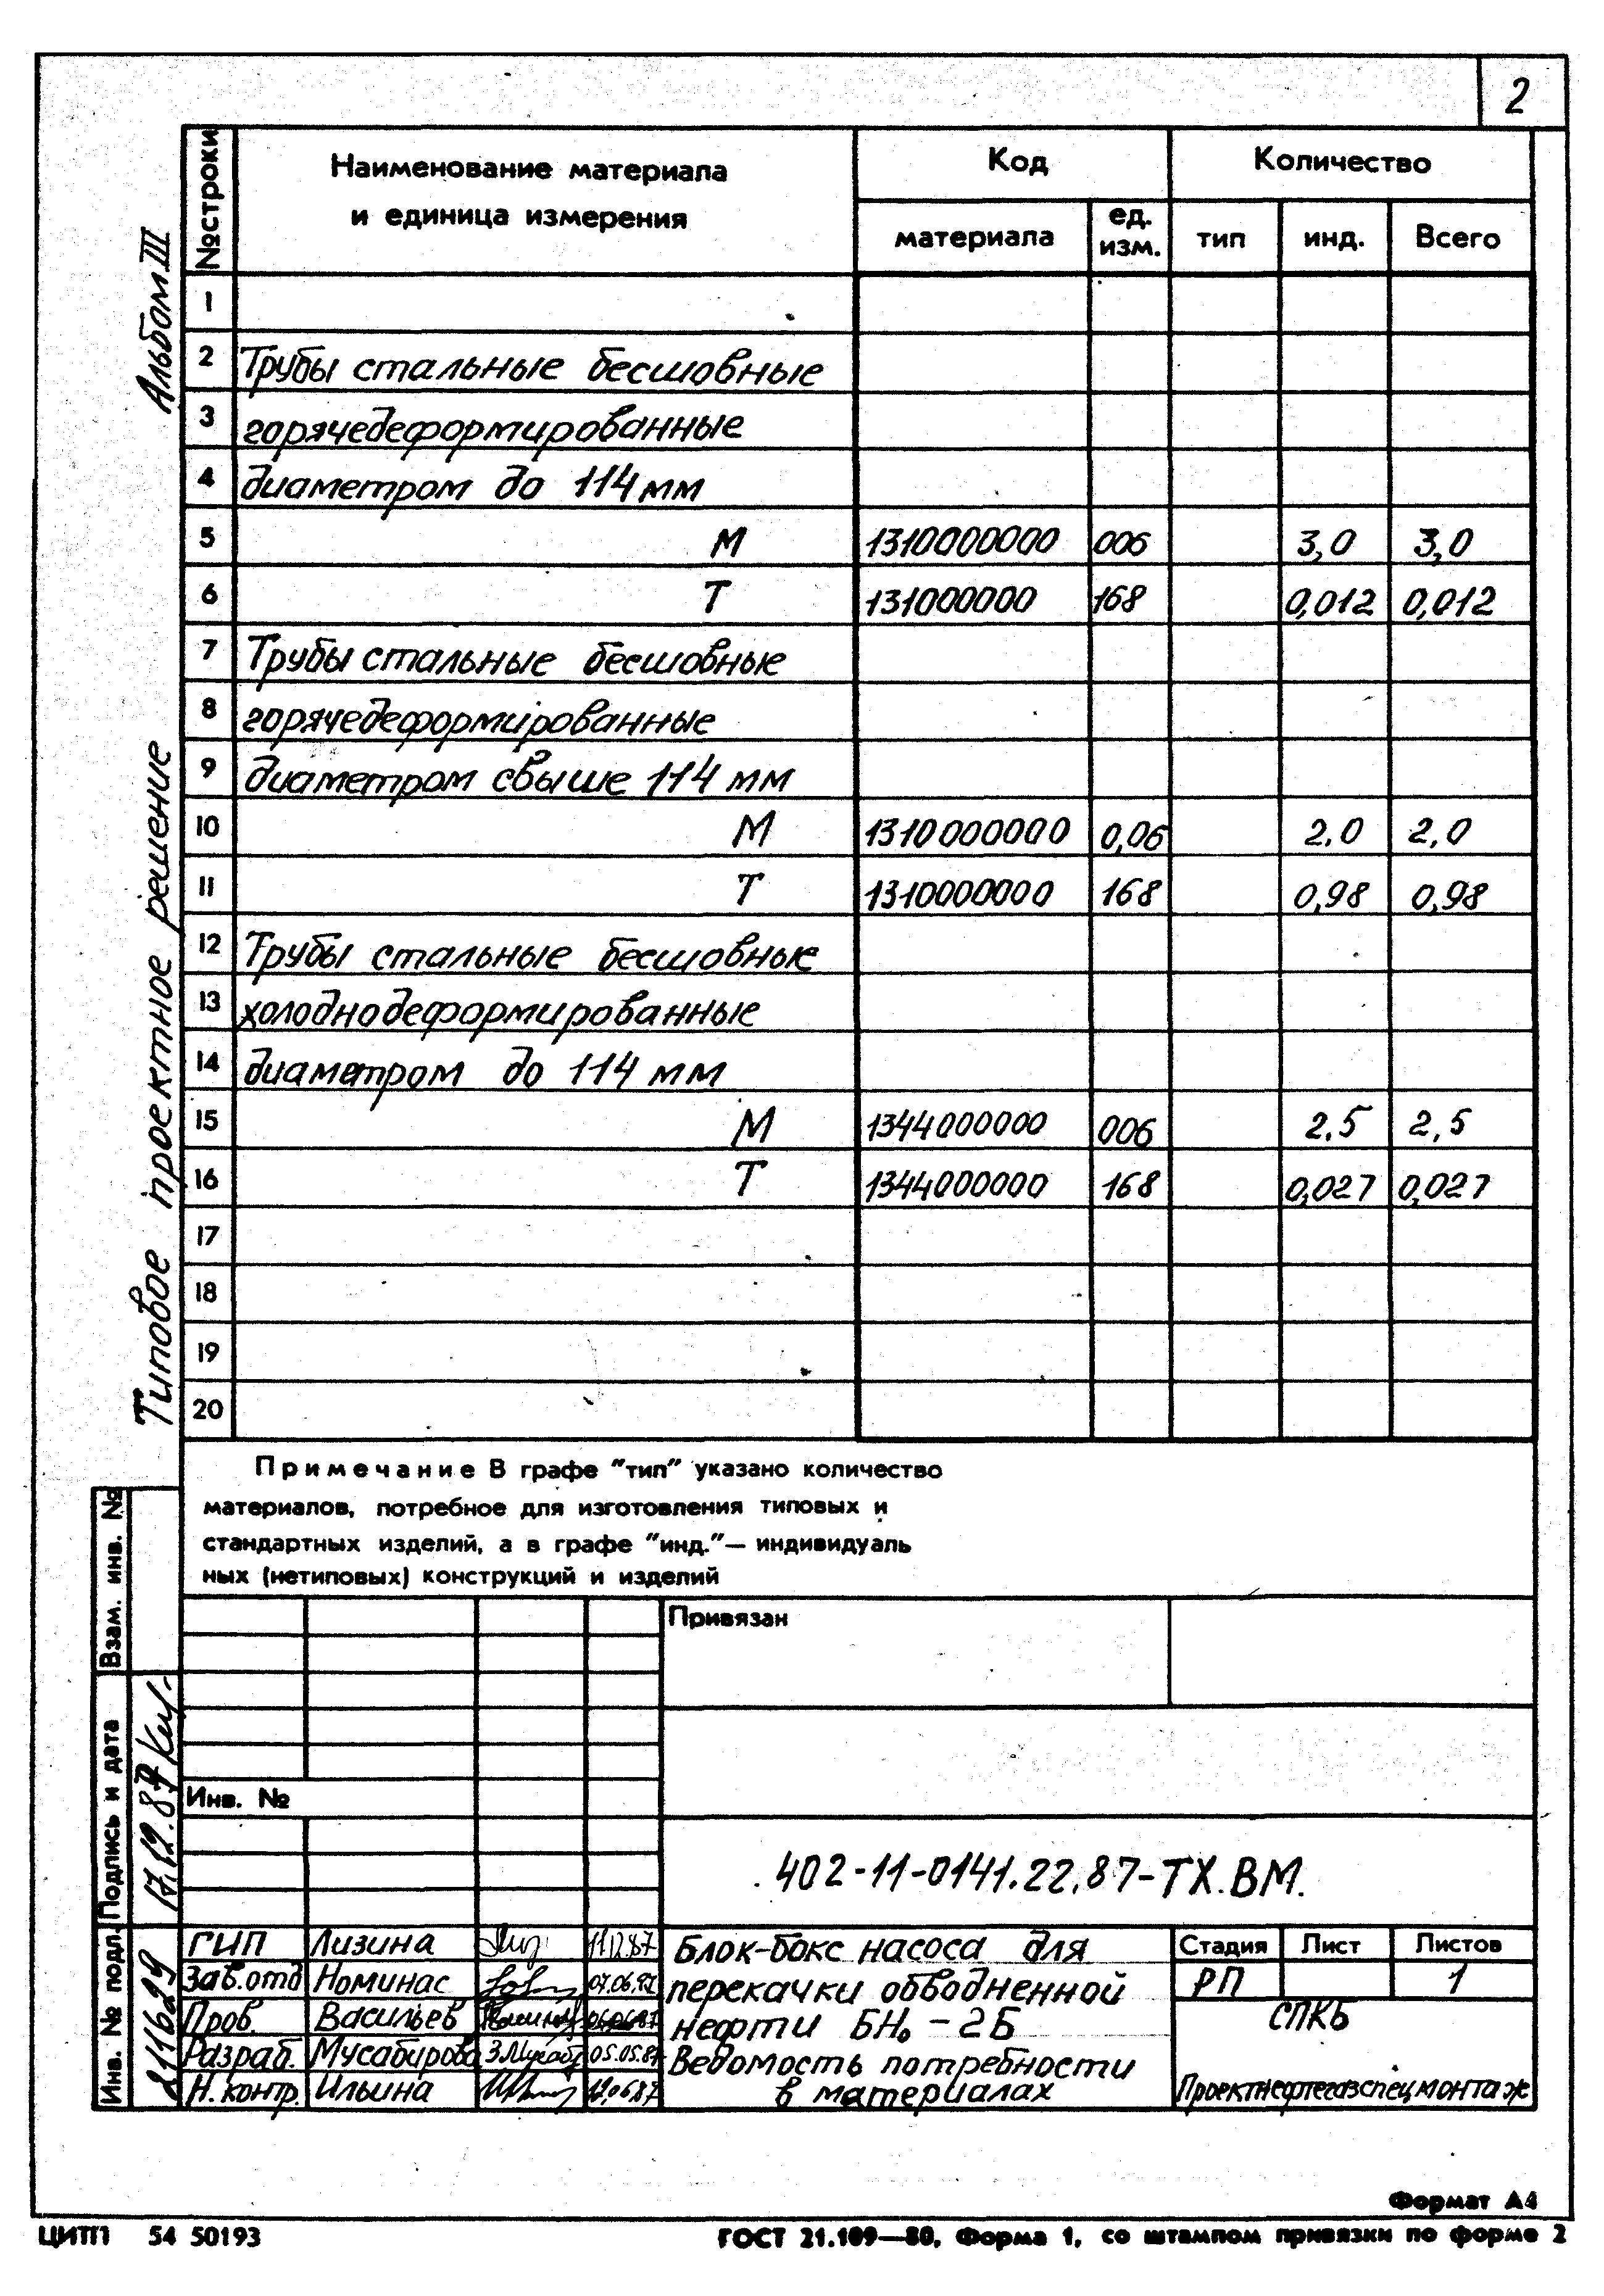 2
Альбом III
Типовое проектное решение
№ строки
Наименование материала
и единица измерения
Код
Количество
материала
ед.
изм.
тип
инд.
Всего
1
2 Трубы стальные бесшовные
3 горячедеформированные
4 диаметром до 114 мм
5 М 1310000000 006 3,0 3,0
6 Т 131000000 168 0,012 0,012
7 Трубы стальные бесшовные
8 горячедеформированные
9 диаметром свыше 114 мм
10 М 1310000000 0,06 2,0 2,0
11 Т 1310000000 168 0,98 0,98
12 Трубы стальные бесшовные
13 холоднодеформированные
14 диаметром до 114 мм
15 М 1344000000 006 2,5 2,5
16 Т 1344000000 168 0,027 0,027
17
18
19
20
Примечание В графе "тип" указано количество
материалов, потребное для изготовления типовых и
стандартных изделий, а в графе "инд."— индивидуаль
ных (нетиповых) конструкций и изделий
Привязан
Инв. №
Взам. инв. №
Подпись и дата
17.12.87
Инв. № подл.
2111629
402-11-0141.22.87-ТХ.ВМ.
ГИП Лизина 11.12.87
Зав.отд Номинас 07.06.87
Пров. Васильев 06.06.87
Разраб. Мусабирова 05.05.87
Н. контр. Ильина 12.06.87
Блок-бокс насоса для
перекачки обводненной
нефти БН₀-2Б
Ведомость потребности
в материалах
Стадия Лист Листов
РП 1
СПКБ
Проектнефтегазспецмонтаж
Формат А4
ЦИТП 54 50193
ГОСТ 21.109—80, Форма 1, со штампом привязки по форме 2